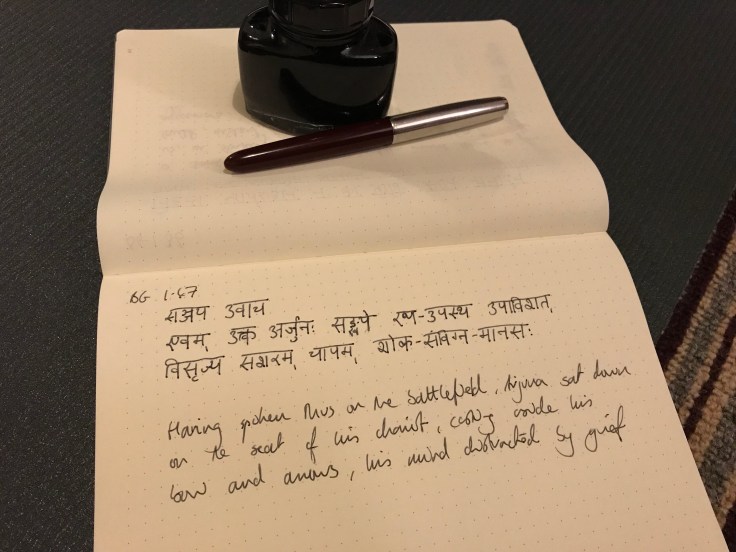 BG 1-47
सञ्जय उवाच
एवम् उक्त अर्जुनः सङ्ख्ये रथ-उपस्थ उपाविशत्
विसृज्य सशरम् चापम् शोक-संविग्न-मानसः
Having spoken thus on the battlefield, Arjuna sat down
on the seat of his chariot, casting aside his
bow and arrows, his mind distracted by grief